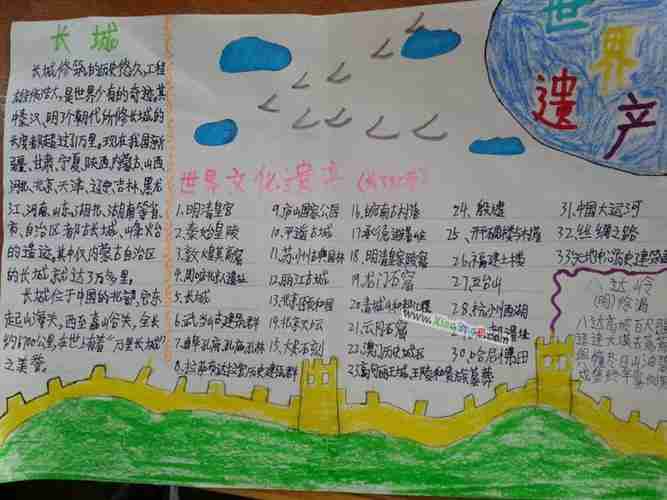 长城
长城修筑的历史悠久,工程
雄伟浩大,是世界少有的奇迹,其
中秦汉、明3个朝代所修长城的
长度都超过了1万里。现在我国新
疆、甘肃、宁夏、陕西、内蒙古、山西、
河北、北京、天津、辽宁、吉林、黑龙
江、河南、山东、湖北、湖南等省、
市、自治区都有古长城、烽火台
的遗迹,其中仅内蒙古自治区
的长城就达3万多里。
长城位于中国的北部,它东
起山海关,西至嘉峪关,全长
约6700公里,在世上有着“万里长城”
之美誉。
世界遗产
世界文化遗产
1.明清皇宫
2.秦始皇陵
3.敦煌莫高窟
4.周口北京人遗址
5.长城
6.武当山古建筑群
7.曲阜孔府、孔庙、孔林
8.拉萨布达拉宫历史建筑群
9.庐山国家公园
10.平遥古城
11.苏州古典园林
12.丽江古城
13.北京颐和园
14.北京天坛
15.大足石刻
16.皖南古村落
17.承德避暑山庄
18.明清皇家陵寝
19.龙门石窟
20.青城山和都江堰
21.云冈石窟
22.澳门历史城区
23.高句丽王城、王陵和贵族墓葬
24.殷墟
25.开平碉楼与村落
26.福建土楼
27.五台山
28.杭州西湖
31.中国大运河
32.丝绸之路
八达岭